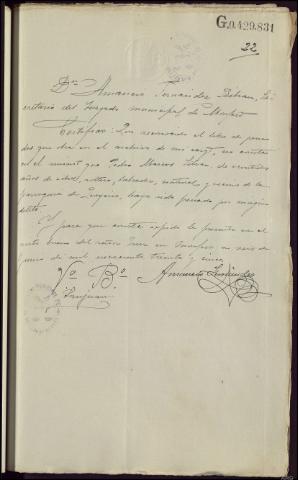 G.0.429.831
22
Dn. Amancio Fernández Beltran, Se-
cretario del Juzgado municipal de Monforte
Certifico: Que reconocido el libro de pena-
dos que obra en el archivo de mi cargo, no consta
en el mismo que Pedro Marcos, de veintidos
años de edad, soltero, labrador, natural y vecino de la
parroquia de, haya sido penado por ningún
delito.
Y para que conste expido la presente con el
visto bueno del señor Juez en Monforte, a seis de
junio de mil novecientos treinta y cinco.
Vo. Bo. Amancio Fernández